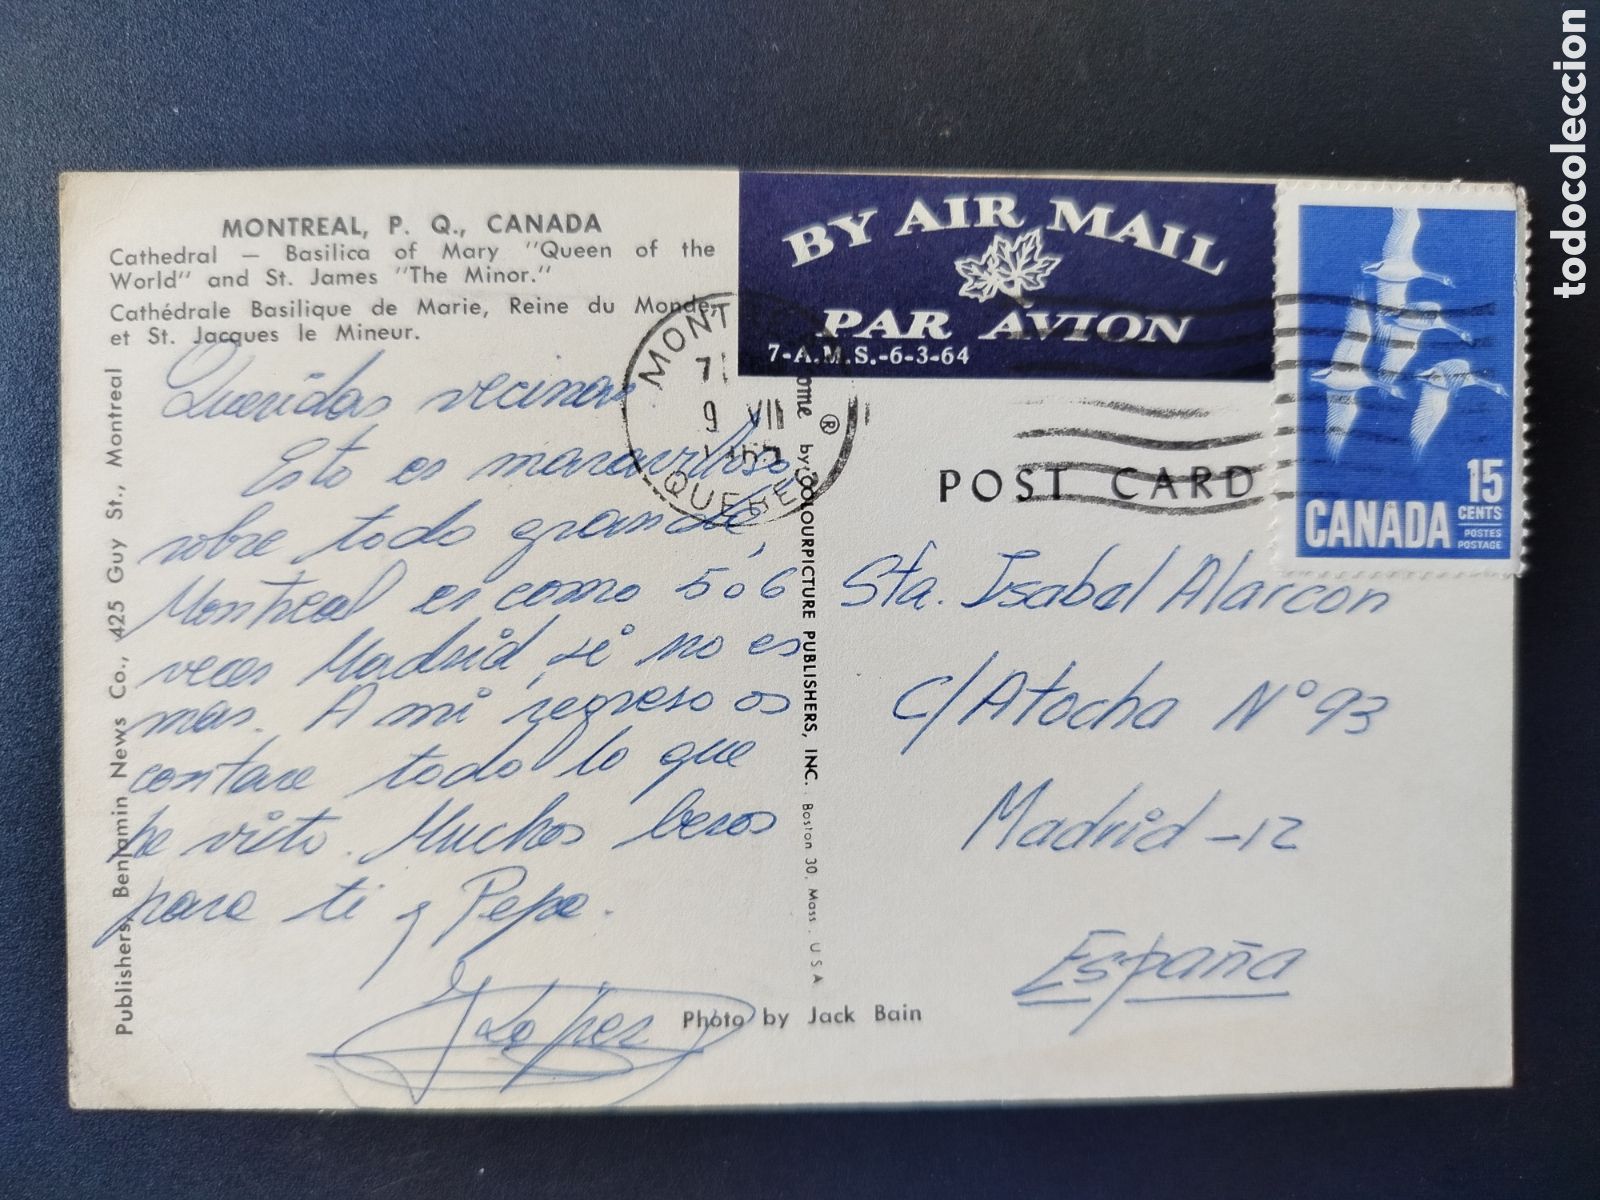 todocoleccion
MONTREAL, P. Q., CANADA
Cathedral — Basilica of Mary "Queen of the
World" and St. James "The Minor."
Cathédrale Basilique de Marie, Reine du Monde,
et St. Jacques le Mineur.
Queridas vecinas
Esto es maravilloso
sobre todo grande,
Montreal es como 5 o 6
veces Madrid, si no es
mas. A mi regreso os
contare todo lo que
he visto. Muchos besos
para ti y Pepa.
J Lopez
Publishers, Benjamin News Co., 425 Guy St., Montreal
MONT
9 VII
QUEBEC
BY AIR MAIL
PAR AVION
7-A.M.S.-6-3-64
ome ® by COLOURPICTURE PUBLISHERS, INC. Boston 30, Mass., U S A
POST CARD
15
CENTS
CANADA
POSTES
POSTAGE
Sta. Isabel Alarcon
C/Atocha Nº 93
Madrid-12
España
Photo by Jack Bain